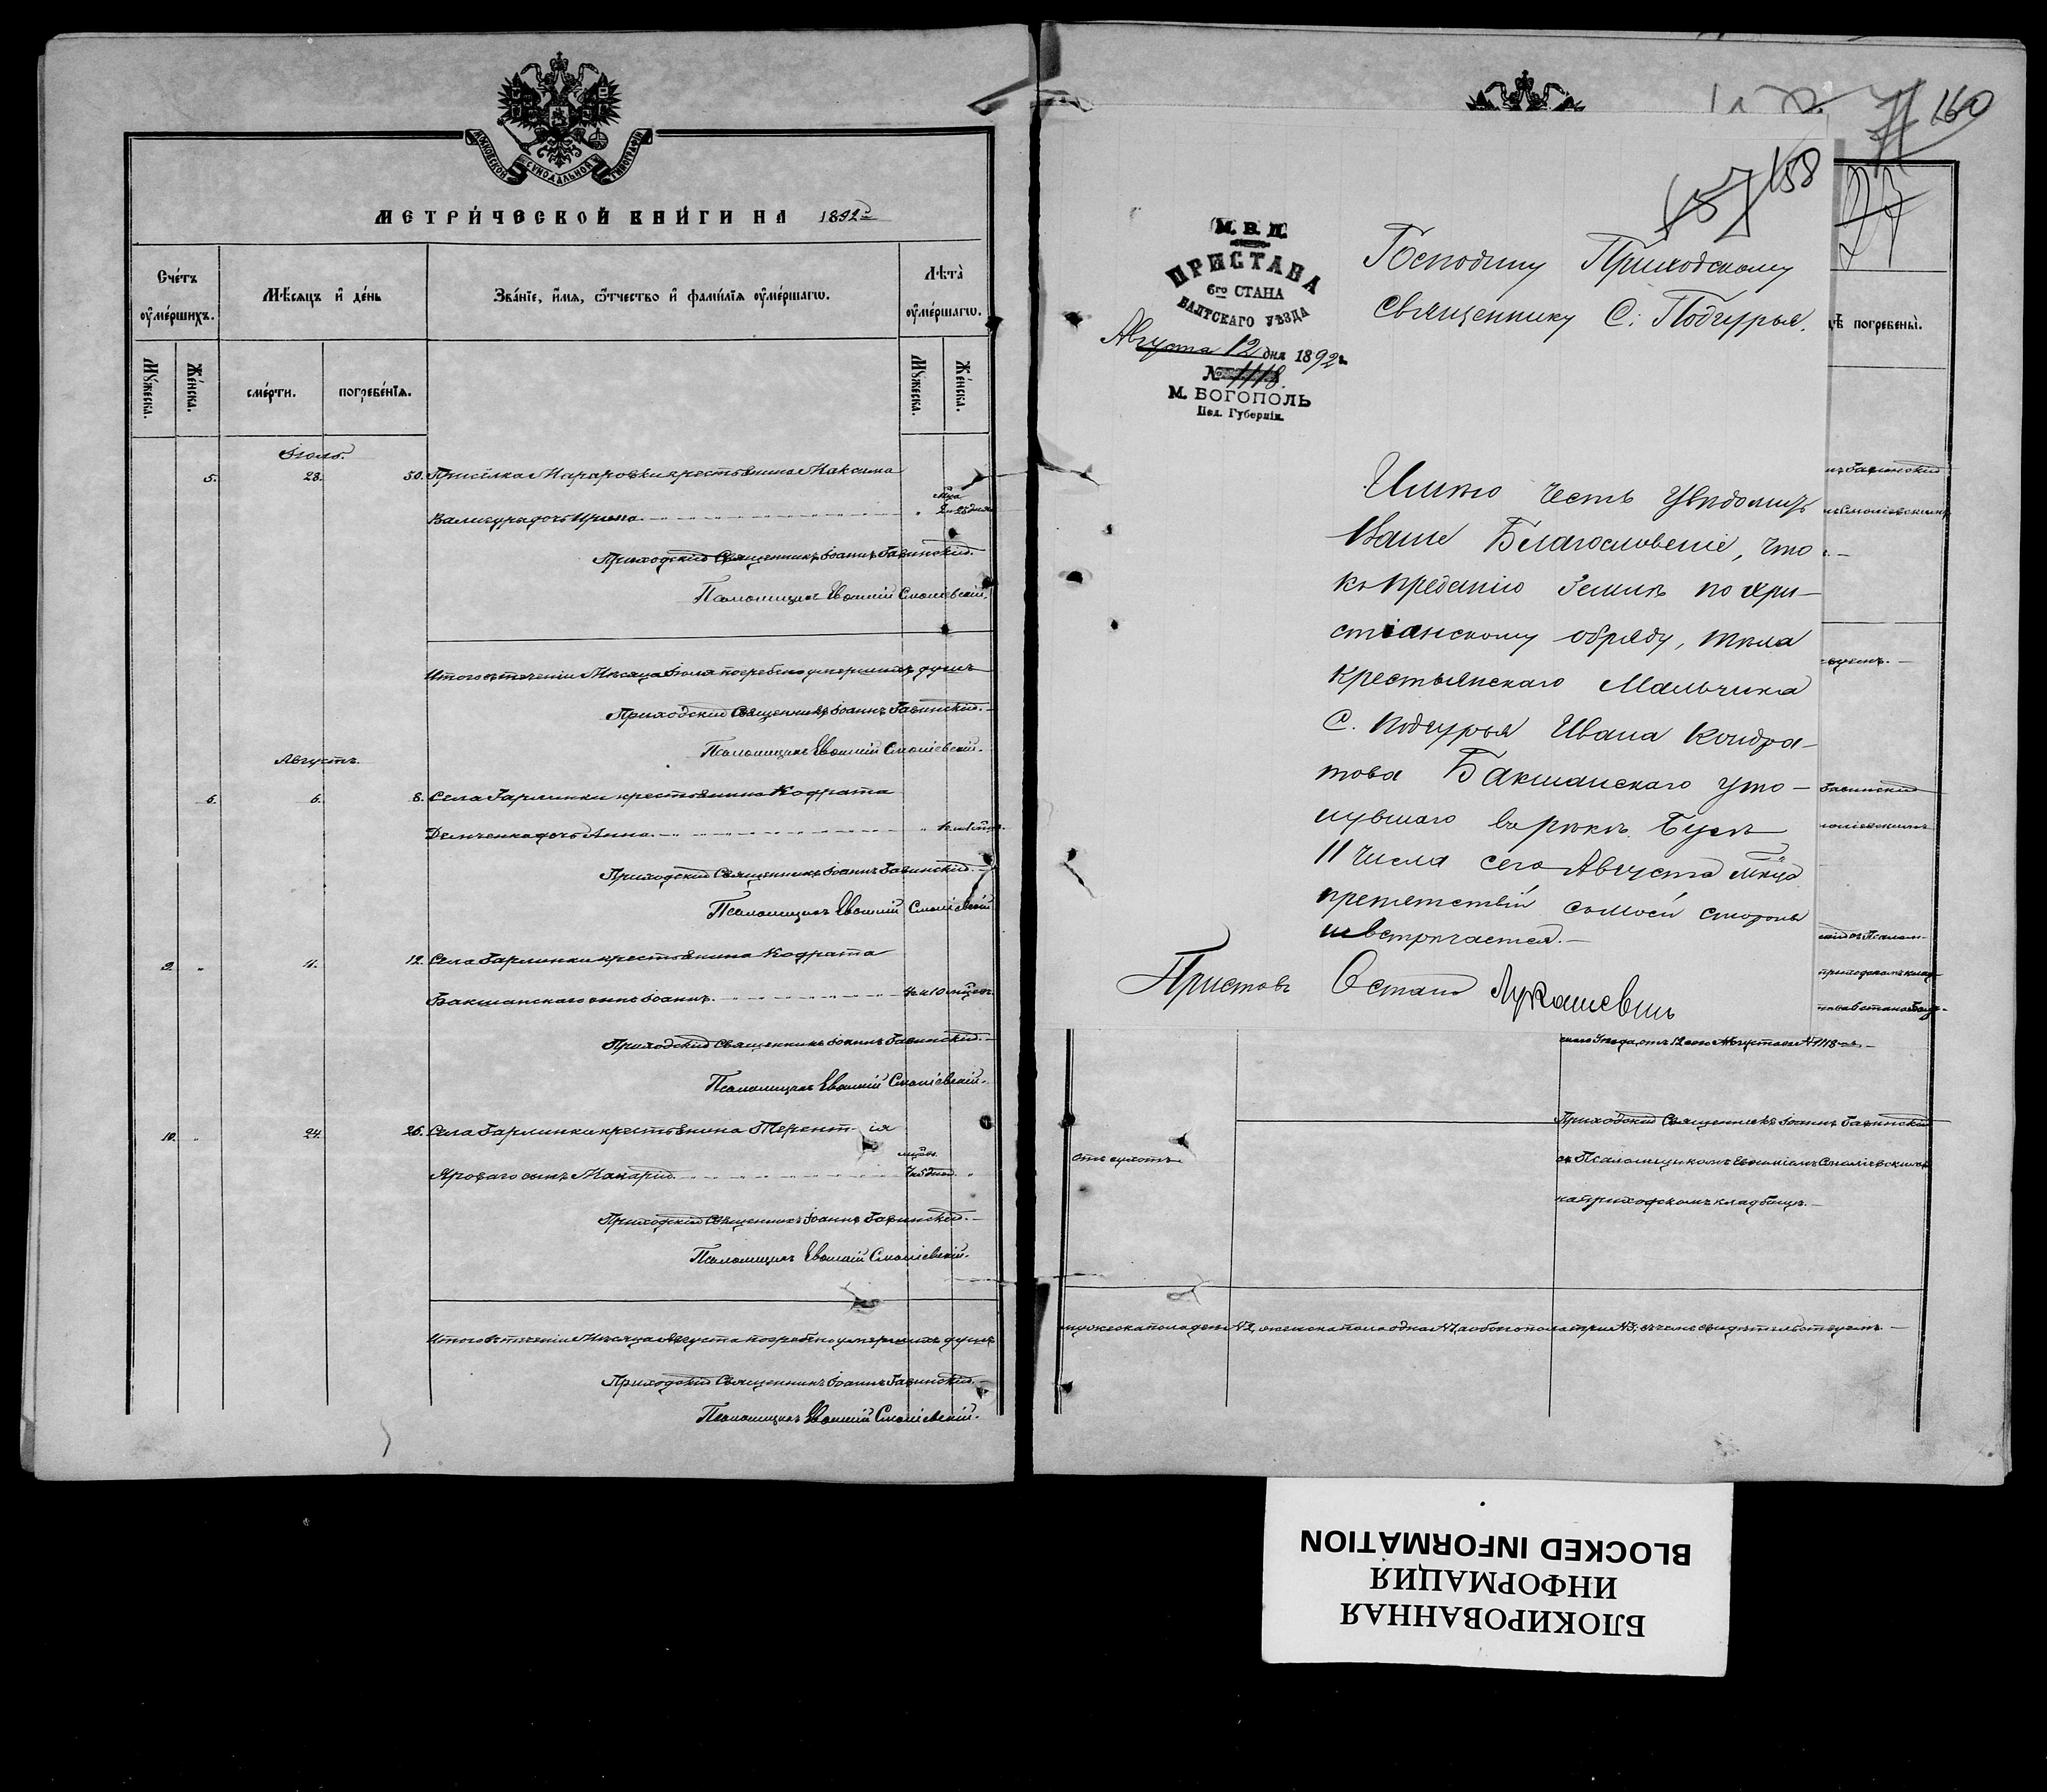 МОСКОВСКОЙ СѴНОДАЛЬНОЙ ТИПОГРАФІИ
МЕТРИ́ЧЕСКОЙ КНИ́ГИ НА 1892 г.
Сче́тъ ᲂу҆ме́ршихъ.
Мѣ́сяцъ и҆ де́нь
Зва́нїе, и҆́мѧ, ѻ҆́тчество и҆ фами́лїѧ ᲂу҆ме́ршагѡ.
Лѣ́та ᲂу҆ме́ршагѡ.
Мꙋ́жеска.
Же́нска.
сме́рти.
погребе́нїѧ.
Мꙋ́жеска.
Же́нска.
Іюль.
5. 28. 30. Присёлка Марагрессивки крестьянина Максима
дочь Ирина
2 м. 25 дней
Приходскій Священникъ Іоаннъ Гавинскій.
Псаломщикъ Евѳимій Смоліевскій.
Итого въ теченіи Мѣсяца Іюля погребено умершихъ душъ
Приходскій Священникъ Іоаннъ Гавинскій.
Псаломщикъ Евѳимій Смоліевскій.
Августъ.
6. 6. 8. Села крестьянина Кодрата
Демченка дочь Анна.
Приходскій Священникъ Іоаннъ Гавинскій.
Псаломщикъ Евѳимій Смоліевскій
9. " 11. 12. Села крестьянина Кодрата
Бакшанскаго сынъ Іоаннъ.
и 10 мѣсяц.
Приходскій Священникъ Іоаннъ Гавинскій.
Псаломщикъ Евѳимій Смоліевскій.
10. " 24. 26. Села крестьянина Терентія
Яроваго сынъ Макарій
Приходскій Священникъ Іоаннъ Гавинскій.
Псаломщикъ Евѳимій Смоліевскій.
Итого въ теченіи Мѣсяца Августа погребено умершихъ душъ
Приходскій Священникъ Іоаннъ Гавинскій.
Псаломщикъ Евѳимій Смоліевскій.
160
77
157 158
М. В. Д.
ПРИСТАВА
6го СТАНА
БАЛТСКАГО УѢЗДА
Августа 12 дня 1892 г.
№ 1118.
М. БОГОПОЛЬ
Под. Губерніи.
Господину Приходскому
Священнику С. Подгурья.
Имѣю честь увѣдомить
Ваше Благословеніе, что
къ преданію землѣ по хри-
стіанскому обряду, тѣла
крестьянскаго мальчика
С. Подгурья Ивана Кондра-
това Бакшанскаго уто-
нувшаго въ рѣкѣ Бугѣ
11 числа сего Августа мѣсяца
препятствій съ моей стороны
не встрѣчается.
Приставъ 6 стана Лукашевичъ
погребены̀.
уѣзда, отъ 12 сего Августа за № 1118-мъ.
отъ сухотъ
Приходскій Священникъ Іоаннъ Гавинскій
съ Псаломщикомъ Евѳиміемъ Смоліевскимъ
на приходскомъ кладбищѣ.
мужеска пола двѣ №2, женска пола одна №1, а обоего пола три №3; въ чемъ свидѣтельствуемъ.
БЛОКИРОВАННАЯ
ИНФОРМАЦИЯ
BLOCKED INFORMATION